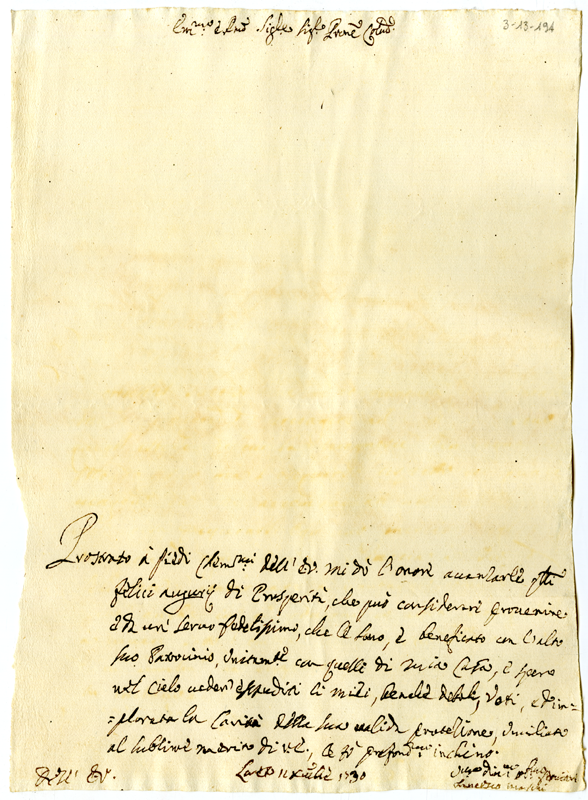 3-13-194
Em.mo e Rmo Sig.re Sig.r Prone Colmo
Prostrato à piedi Clem.mi dell' Ev. mi dò l'onore avanzarle
felici augurij di Prosperità, che può considerare provenire
da un servo fedelissimo, che le sono, è beneficato con l'alto
suo Patrocinio, con quelle di mia Casa, è spero
nel Cielo veder esauditi li miei, benche deboli, Voti, ed im=
=plorata la Carità della sua valida protetione, umiliato
al sublime merito di le fò profond.mo inchino.
Dell' Ev.
1730